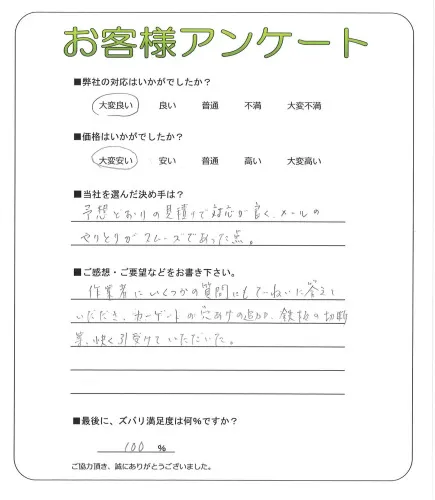 お客様アンケート
■弊社の対応はいかがでしたか？
大変良い 良い 普通 不満 大変不満
■価格はいかがでしたか？
大変安い 安い 普通 高い 大変高い
■当社を選んだ決め手は？
予想どおりの見積りで対応が良く、メールの
やりとりがスムーズであった点。
■ご感想・ご要望などをお書き下さい。
作業者にいくつかの質問にもていねいに答えて
いただき、カーゲートの穴あけの追加、鉄板の切断
等、快く引受けていただいた。
■最後に、ズバリ満足度は何％ですか？
100 ％
ご協力頂き、誠にありがとうございました。